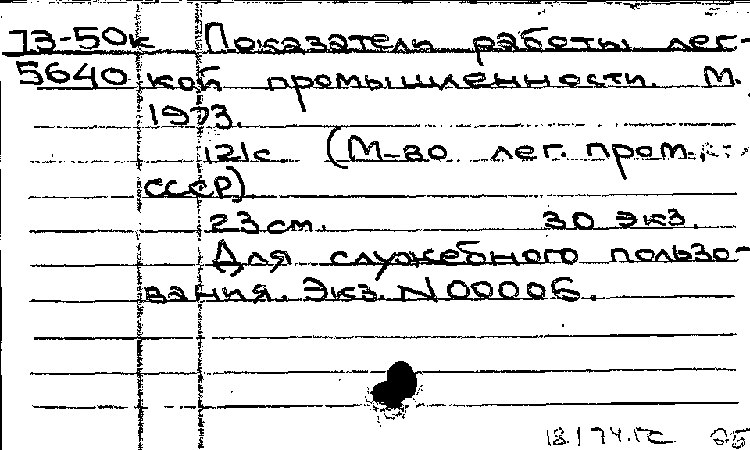 73-50к Показатель работы лег-
5640 кой промышленности. М.
1973.
121с (М-во лег. пром.
СССР)
23 см. 30 экз.
Для служебного пользо-
вания. Экз. N 00006.